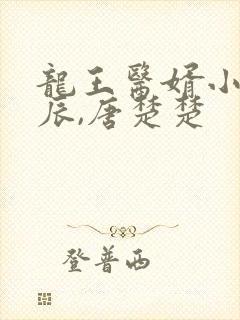 龍王醫婿小
辰,唐楚楚
登普西